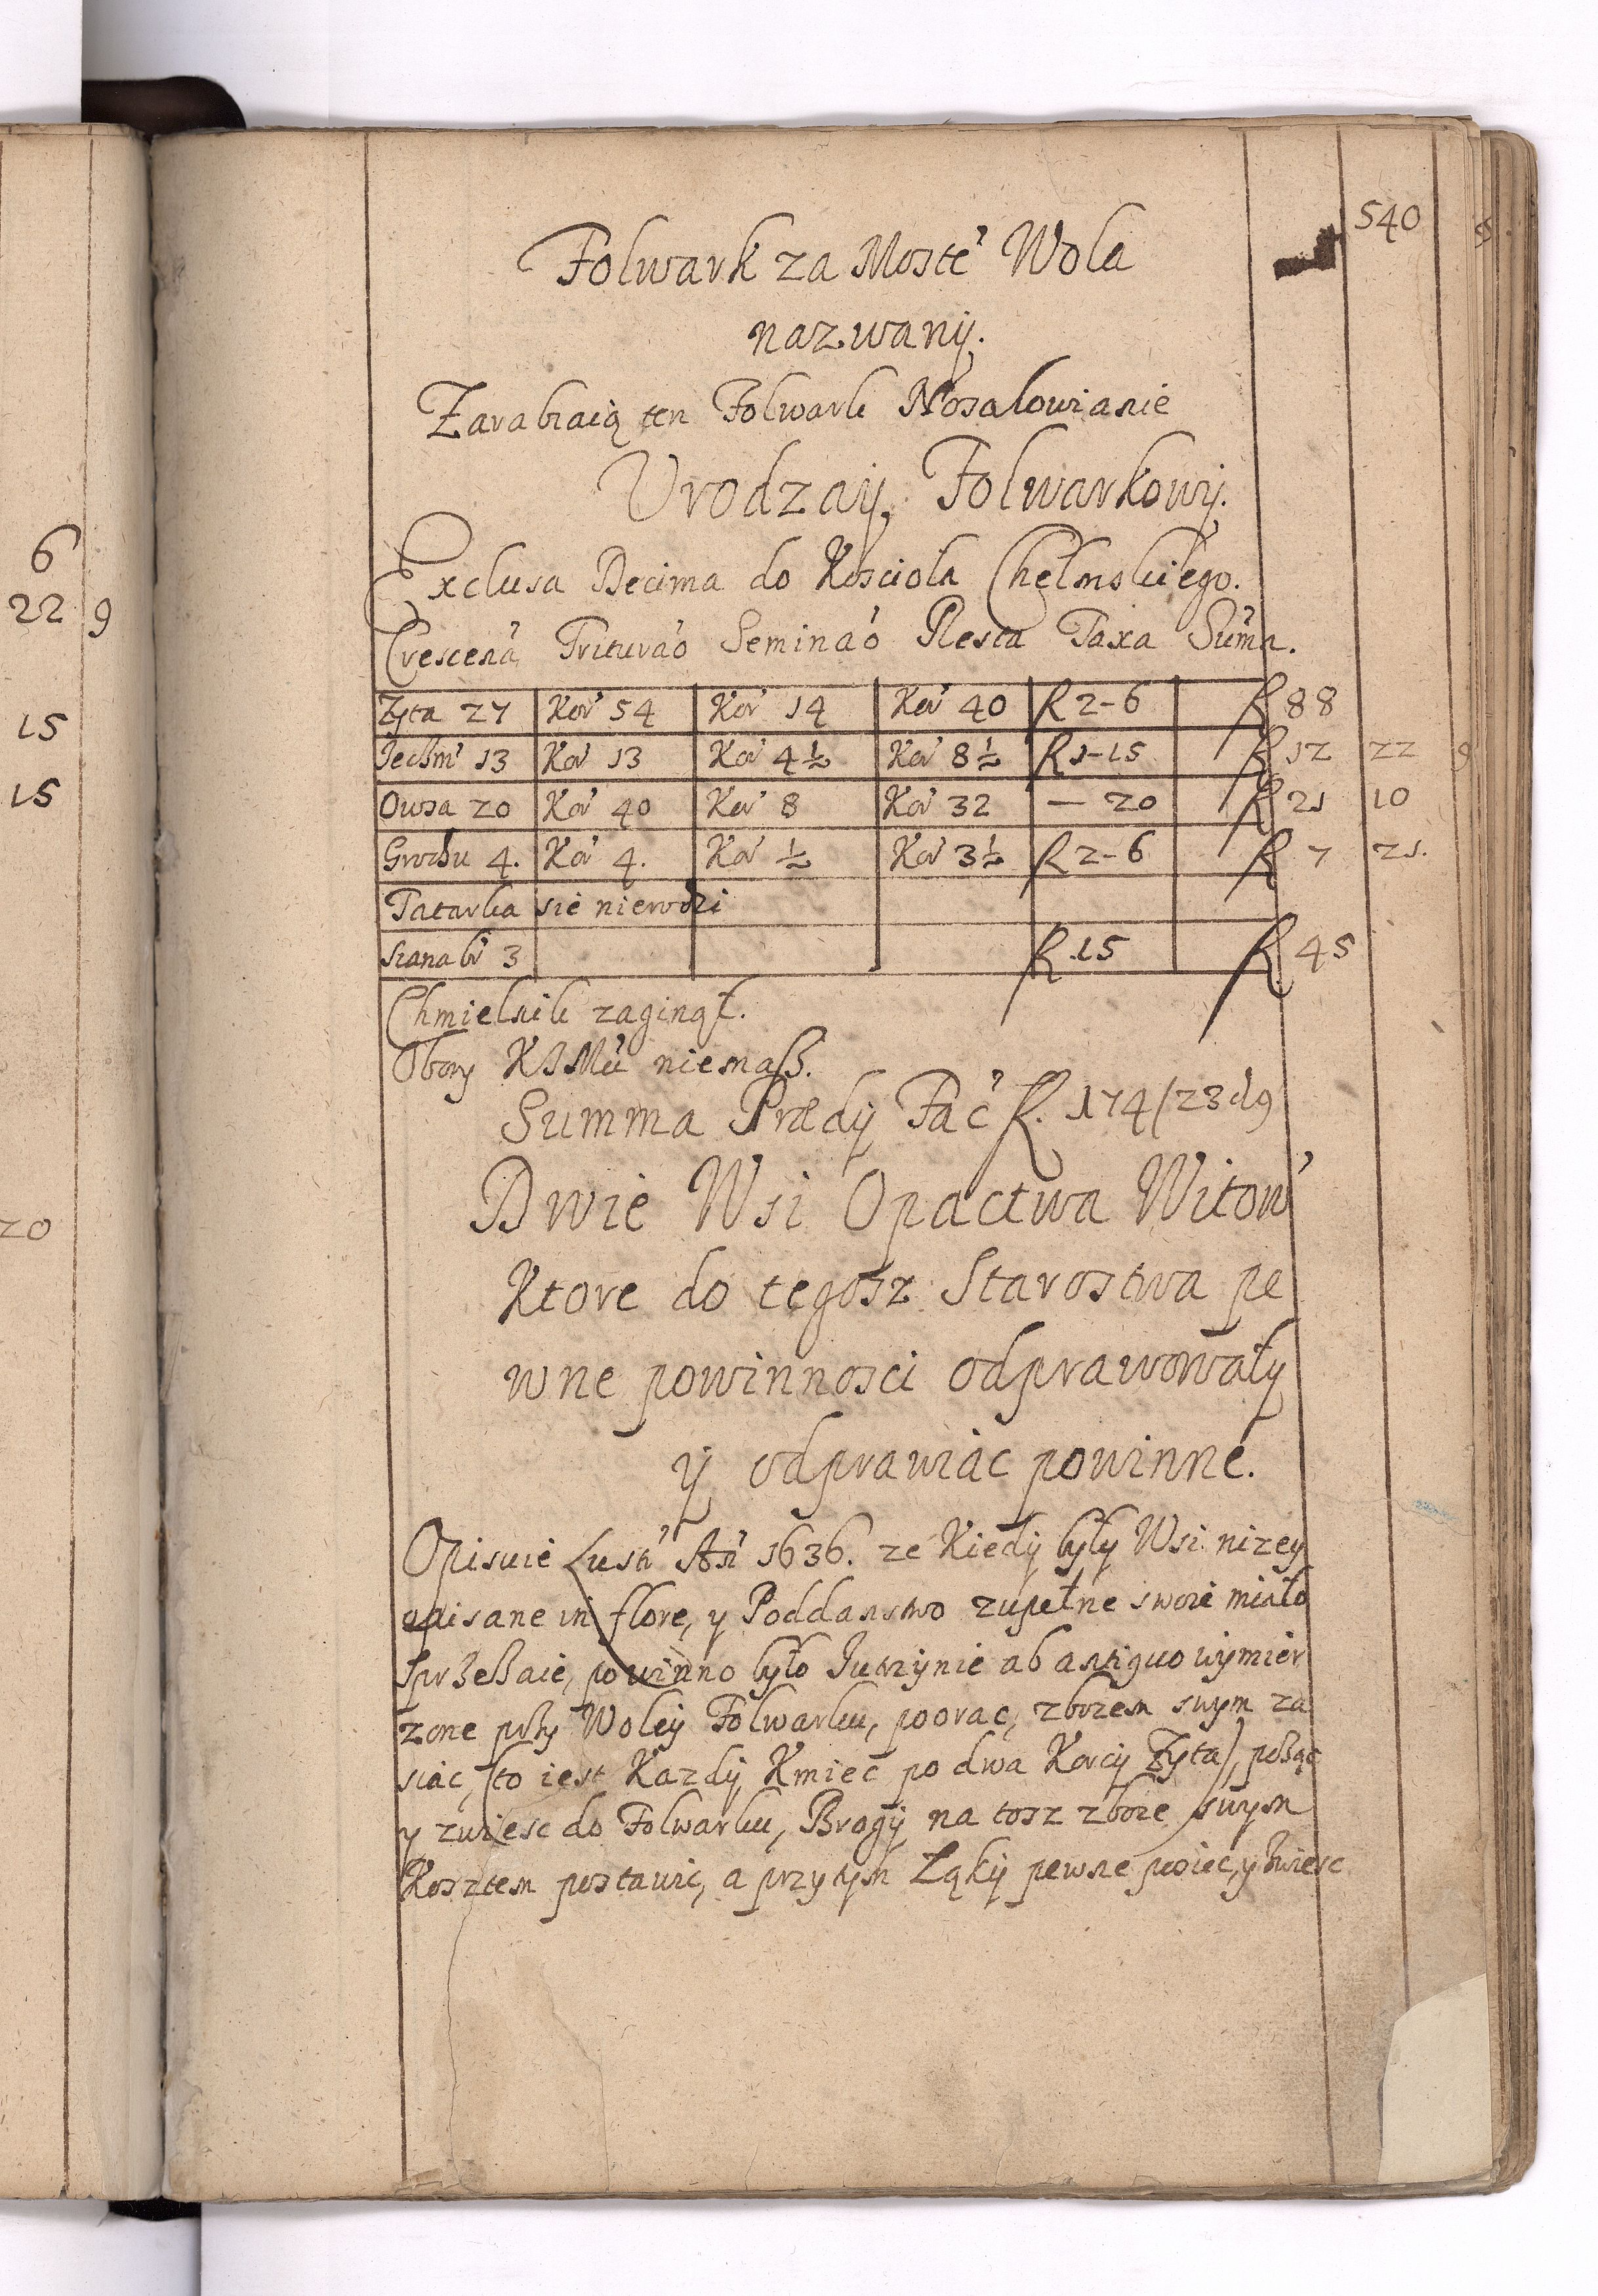 540
Folwark za Moste' Wola
nazwany.
Zarabiaią ten Folwark Nosalowianie
Urodzay Folwarkowy.
Exclusa Decima do Kosciola Chełmskiego.
Crescena Triturao Seminao Resta Taxa Summ.
Zyta 27 Kor 54 Kor 14 Kor 40 R 2-6 R 88
Jeczm 13 Kor 13 Kor 4½ Kor 8½ R 1-15 R 12 22 9
Owsa 20 Kor 40 Kor 8 Kor 32 — 20 R 21 10
Grochu 4. Kor 4. Kor ½ Kor 3½ R 2-6 R 7 21.
Tatarka sie nierodzi
Siana br 3 R 15 R 45
Chmielnik zaginął.
Obory KJMci niemasz.
Summa Prædy Fac R. 174/23 d 9
Dwie Wsi Opactwa Witow
Ktore do tegosz Starostwa pe
wne powinnosci odprawowały
y odprawiac powinne.
Opisuie Lustr An 1636. ze Kiedy były Wsi nizey
opisane in flore, y Poddanstwo zupełne swoie miało
sprzężaie, powinno było Jutrzynie ab antiquo wymier
zone przy Woley Folwarku, poorac, zbozem swym za
siac, (to iest Kazdy Kmiec po dwa Korcy Zyta), pożąc
y zwiesc do Folwarku, Brogy na tosz zboze swym
Kosztem postawic, a przytym Łąky pewne posiec, y zwiesc
6
22 9
15
15
20